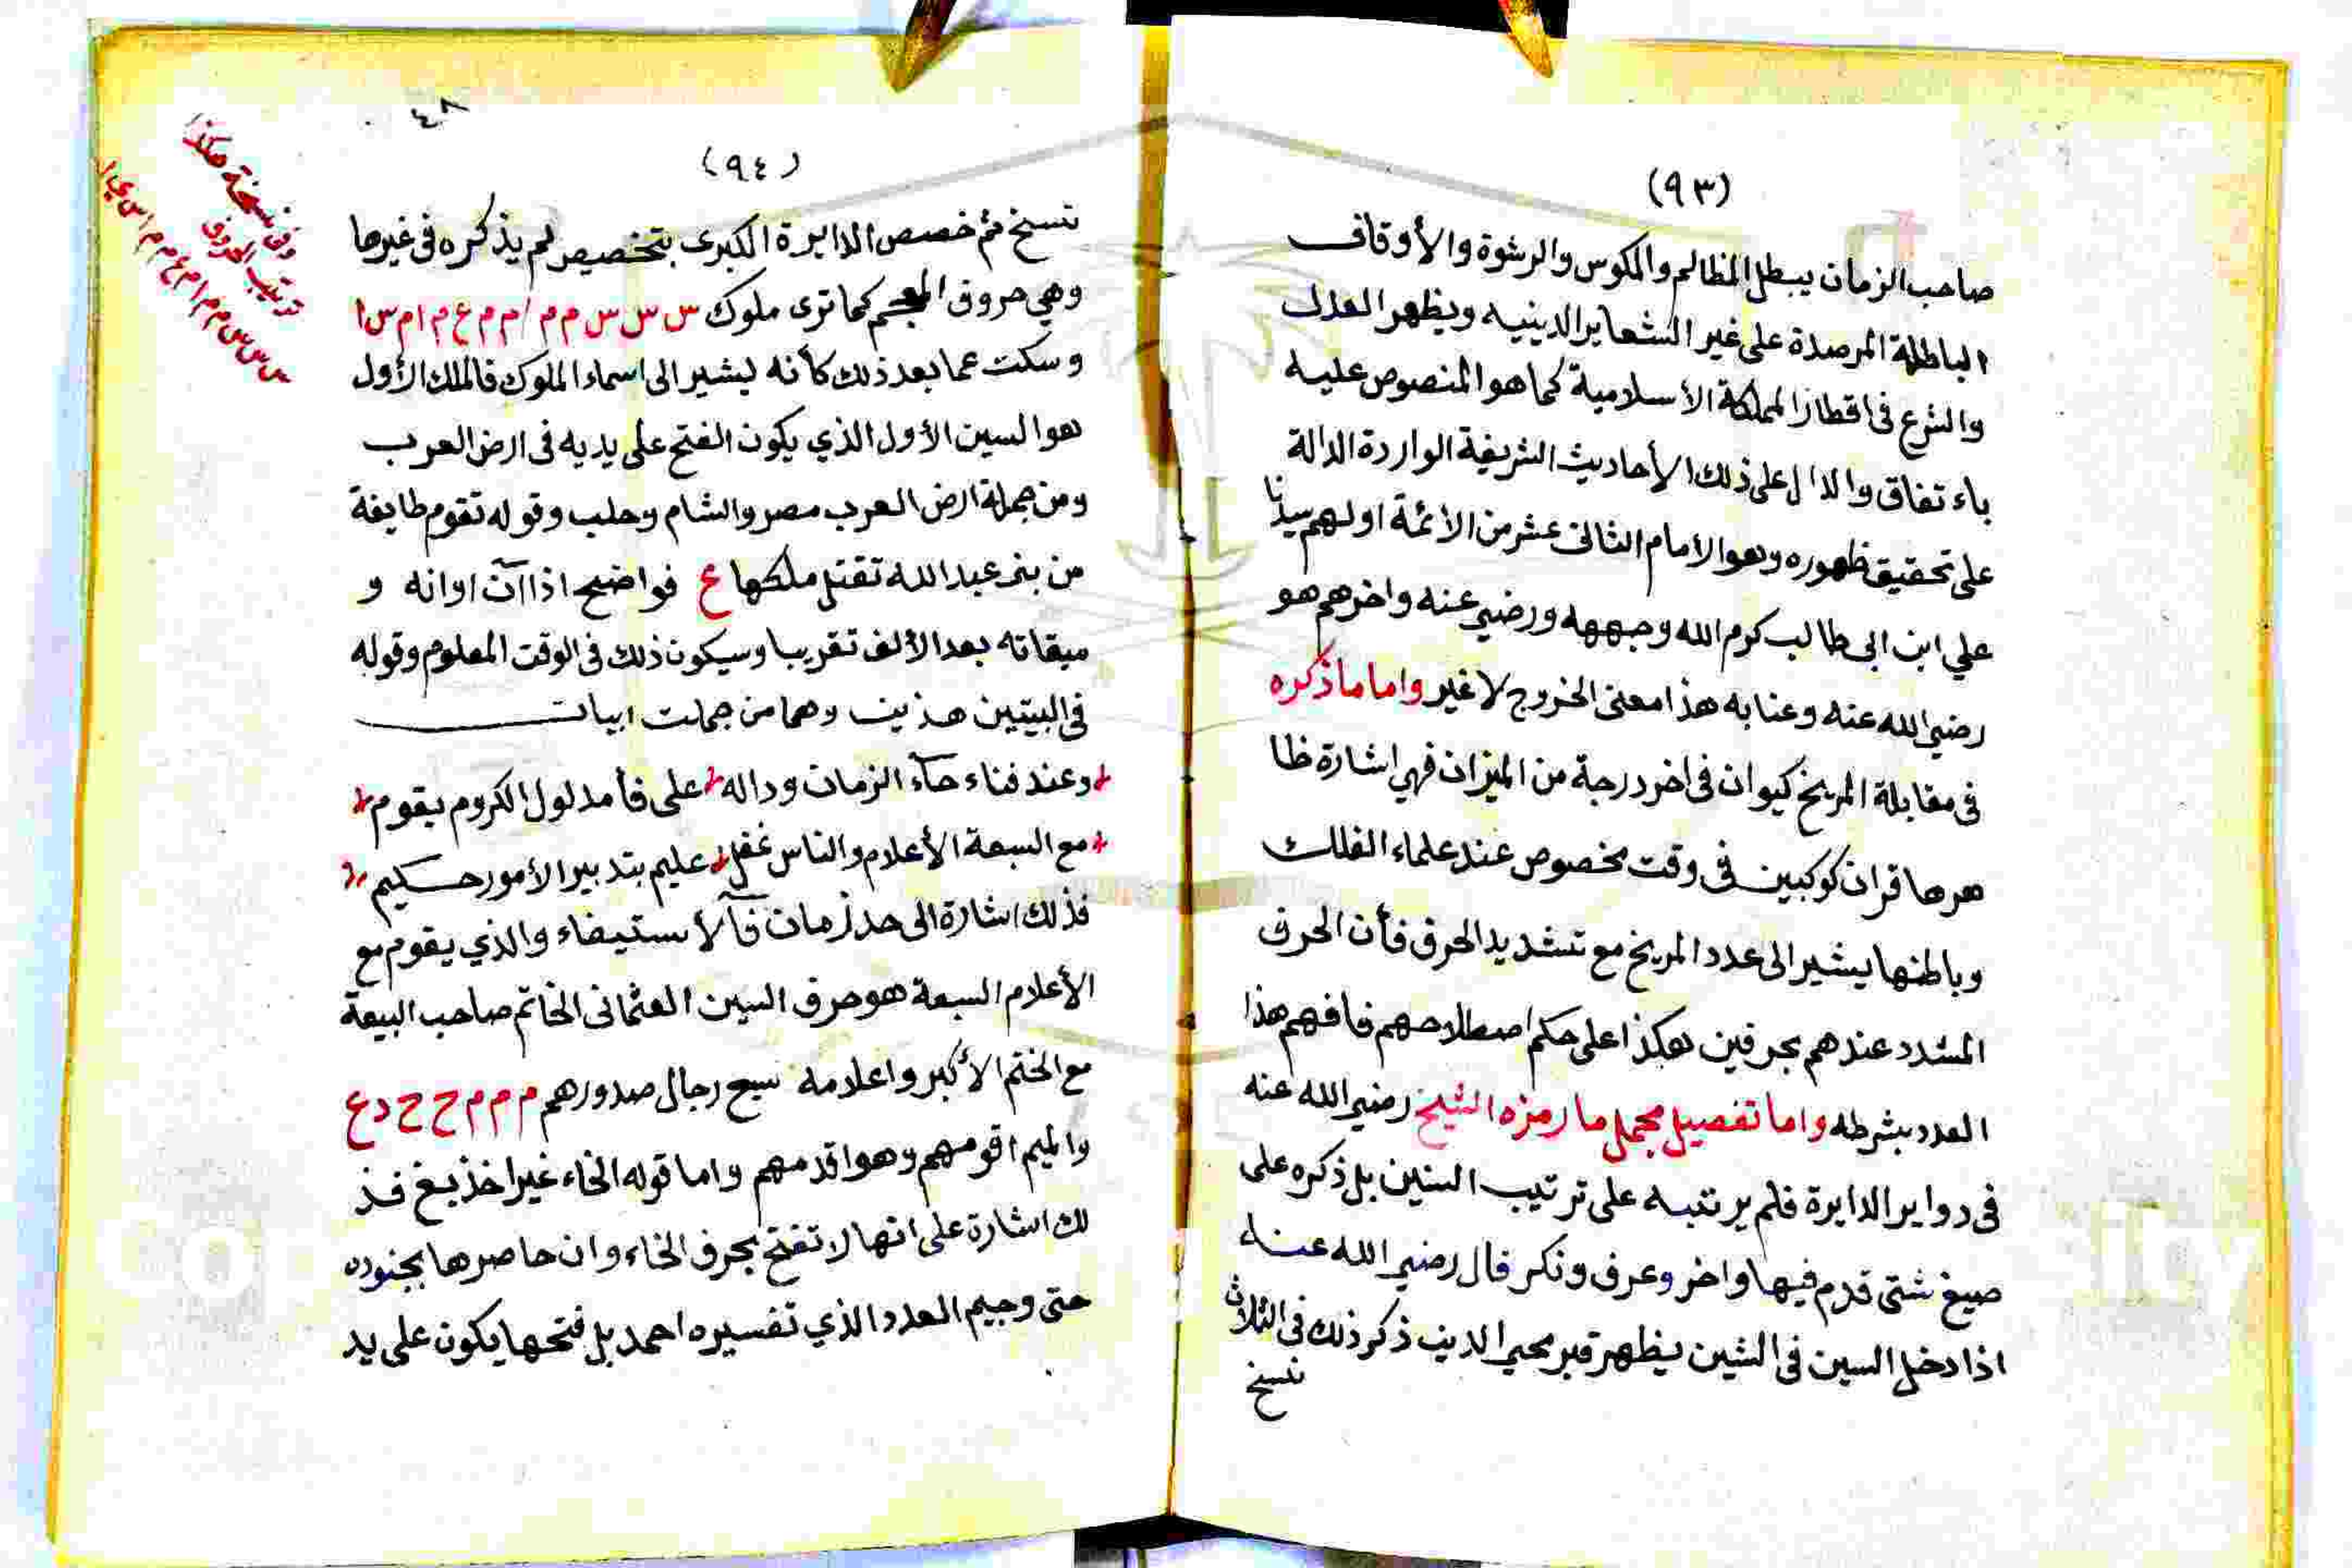 (٩٣)
صاحب الزمان يبطل المظالم والمكوس والرشوة والأوقاف
الباطلة المرصدة على غير الشعاير الدينيه ويظهر العدل
والشرع فى اقطار المملكة الأسلامية كما هو المنصوص عليه
باء تفاق والدال على ذلك الأحاديث الشريفة الواردة الدالة
على تحقيق ظهوره وهو الامام الثانى عشر من الائمة اولهم سيدنا
علي ابن ابى طالب كرم الله وجهه ورضي عنه واخرهم هو
رضي الله عنه وعنا به هذا معنى الخروج لا غير واما ما ذكره
فى مقابلة المريخ كيوان فى اخر درجة من الميزان فهي اشارة ظا
هرها قران كوكبين فى وقت مخصوص عند علماء الفلك
وباطنها يشير الى عدد المريخ مع تشديد الحرف فأن الحرف
المشدد عندهم بحرفين هكذا على حكم اصطلاحهم فافهم هذا
العدد بشرطه واما تفصيل مجمل ما رمزه الشيخ رضي الله عنه
فى دواير الدايرة فلم يرتبه على ترتيب السنين بل ذكره على
صيغ شتى قدم فيها واخر وعرف ونكر قال رضي الله عنه
اذا دخل السين فى الشين يظهر قبر محيي الدين ذكر ذلك فى الثلاث
نسخ
٤٨
(٩٤)
نسخ ثم خصص الدايرة الكبرى بتخصيص لم يذكره فى غيرها
وهي حروف المعجم كما ترى ملوك س س س س م م ا م م ع م ا م س ا
وسكت عما بعد ذلك كأنه يشير الى اسماء الملوك فالملك الأول
هو السين الأول الذي يكون الفتح على يديه فى ارض العرب
ومن جملة ارض العرب مصر والشام وحلب وقوله تقوم طايفة
من بني عبد الله تقتل ملكها ع فواضح اذا آن اوانه و
ميقاته بعد الألف تقريبا وسيكون ذلك فى الوقت المعلوم وقوله
فى البيتين هذين وهما من جملت ابيات
وعند فناء خآء الزمان وداله على فأ مدلول الكروم يقوم
مع السبعة الأعلام والناس غفل عليم بتدبير الأمور حكيم
فذلك اشارة الى حد زمان فآ لأ ستيفاء والذي يقوم مع
الأعلام السبعة هو حرف السين العثمانى الخاتم صاحب البيعة
مع الختم الأكبر واعلامه سبع رجال صدورهم م م م ح ح د ع
والميم اقومهم وهو اقدمهم واما قوله الخاء غير اخذ بغ فذ
لك اشارة على انها لا تفتح بحرف الخاء وان حاصرها بجنوده
حتى وجيم العدد الذي تفسيره احمد بل فتحها يكون على يد
وفى نسخة هكذا
ترتيب الحروف
س س س س م م ا م ع م م ا س ي ا